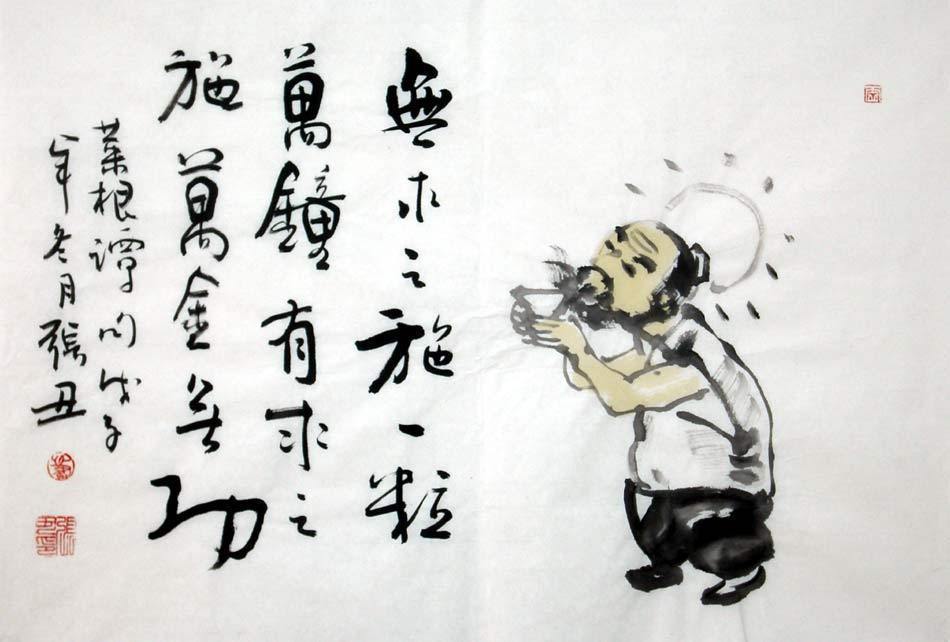 無求之施一粒
萬鐘有求之
施萬金無功
菜根譚句戊子
年冬月張丑